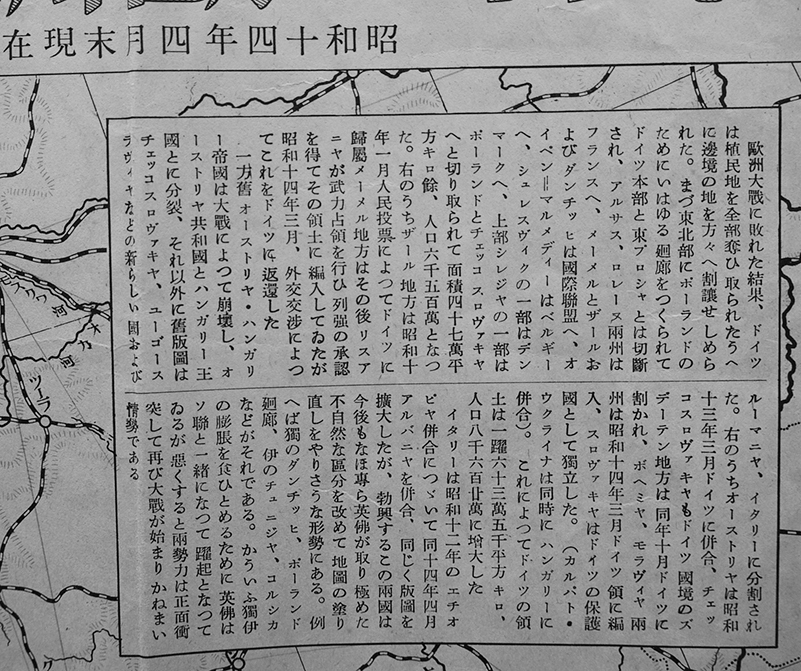 昭和十四年四月末現在
歐洲大戰に敗れた結果、ドイツ
は植民地を全部奪ひ取られたうへ
に邊境の地を方々へ割讓せしめら
れた。まづ東北部にポーランドの
ためにいはゆる廻廊をつくられて
ドイツ本部と東プロシャとは切斷
され、アルサス、ロレーヌ兩州は
フランスへ、メーメルとザールお
よびダンチッヒは國際聯盟へ、オ
イペン=マルメディーはベルギー
へ、シュレスヴィクの一部はデン
マークへ、上部シレジヤの一部は
ポーランドとチェッコスロヴァキヤ
へと切り取られて面積四十七萬平
方キロ餘、人口六千五百萬となつ
た。右のうちザール地方は昭和十
年一月人民投票によつてドイツに
歸屬メーメル地方はその後リスア
ニヤが武力占領を行ひ列强の承認
を得てその領土に編入してゐたが
昭和十四年三月、外交交渉によつ
てこれをドイツに返還した
一方舊オーストリヤ・ハンガリ
ー帝國は大戰によつて崩壞し、オ
ーストリヤ共和國とハンガリー王
國とに分裂、それ以外に舊版圖は
チェッコスロヴァキヤ、ユーゴース
ラヴィヤなどの新らしい國および
ルーマニヤ、イタリーに分割され
た。右のうちオーストリヤは昭和
十三年三月ドイツに併合、チェッ
コスロヴァキヤもドイツ國境のズ
デーテン地方は同年十月ドイツに
割かれ、ボヘミヤ、モラヴィヤ兩
州は昭和十四年三月ドイツ領に編
入、スロヴァキヤはドイツの保護
國として獨立した。(カルパト・
ウクライナは同時にハンガリーに
併合)。これによつてドイツの領
土は一躍六十三萬五千平方キロ、
人口八千六百廿萬に增大した
イタリーは昭和十二年のエチオ
ピヤ併合につゞいて同十四年四月
アルバニヤを併合、同じく版圖を
擴大したが、勃興するこの兩國は
今後もなほ專ら英佛が取り極めた
不自然な區分を改めて地圖の塗り
直しをやりさうな形勢にある。例
へば獨のダンチッヒ、ポーランド
廻廊、伊のチュニジヤ、コルシカ
などがそれである。かういふ獨伊
の膨脹を食ひとめるために英佛は
ソ聯と一緒になつて躍起となつて
ゐるが惡くすると兩勢力は正面衝
突して再び大戰が始まりかねまい
情勢である
ツーラ